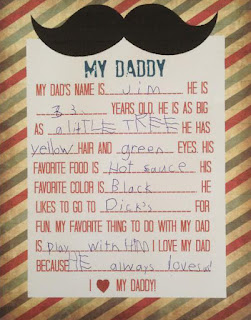 MY DADDY
MY DAD'S NAME IS Jim HE IS
33 YEARS OLD. HE IS AS BIG
AS a liTTLE TREE HE HAS
yellow HAIR AND green EYES. HIS
FAVORITE FOOD IS Hot sauce HIS
FAVORITE COLOR IS Black HE
LIKES TO GO TO Dick's FOR
FUN. MY FAVORITE THING TO DO WITH MY DAD
IS Play with HIM I LOVE MY DAD
BECAUSE HE always loves
I ♥ MY DADDY!